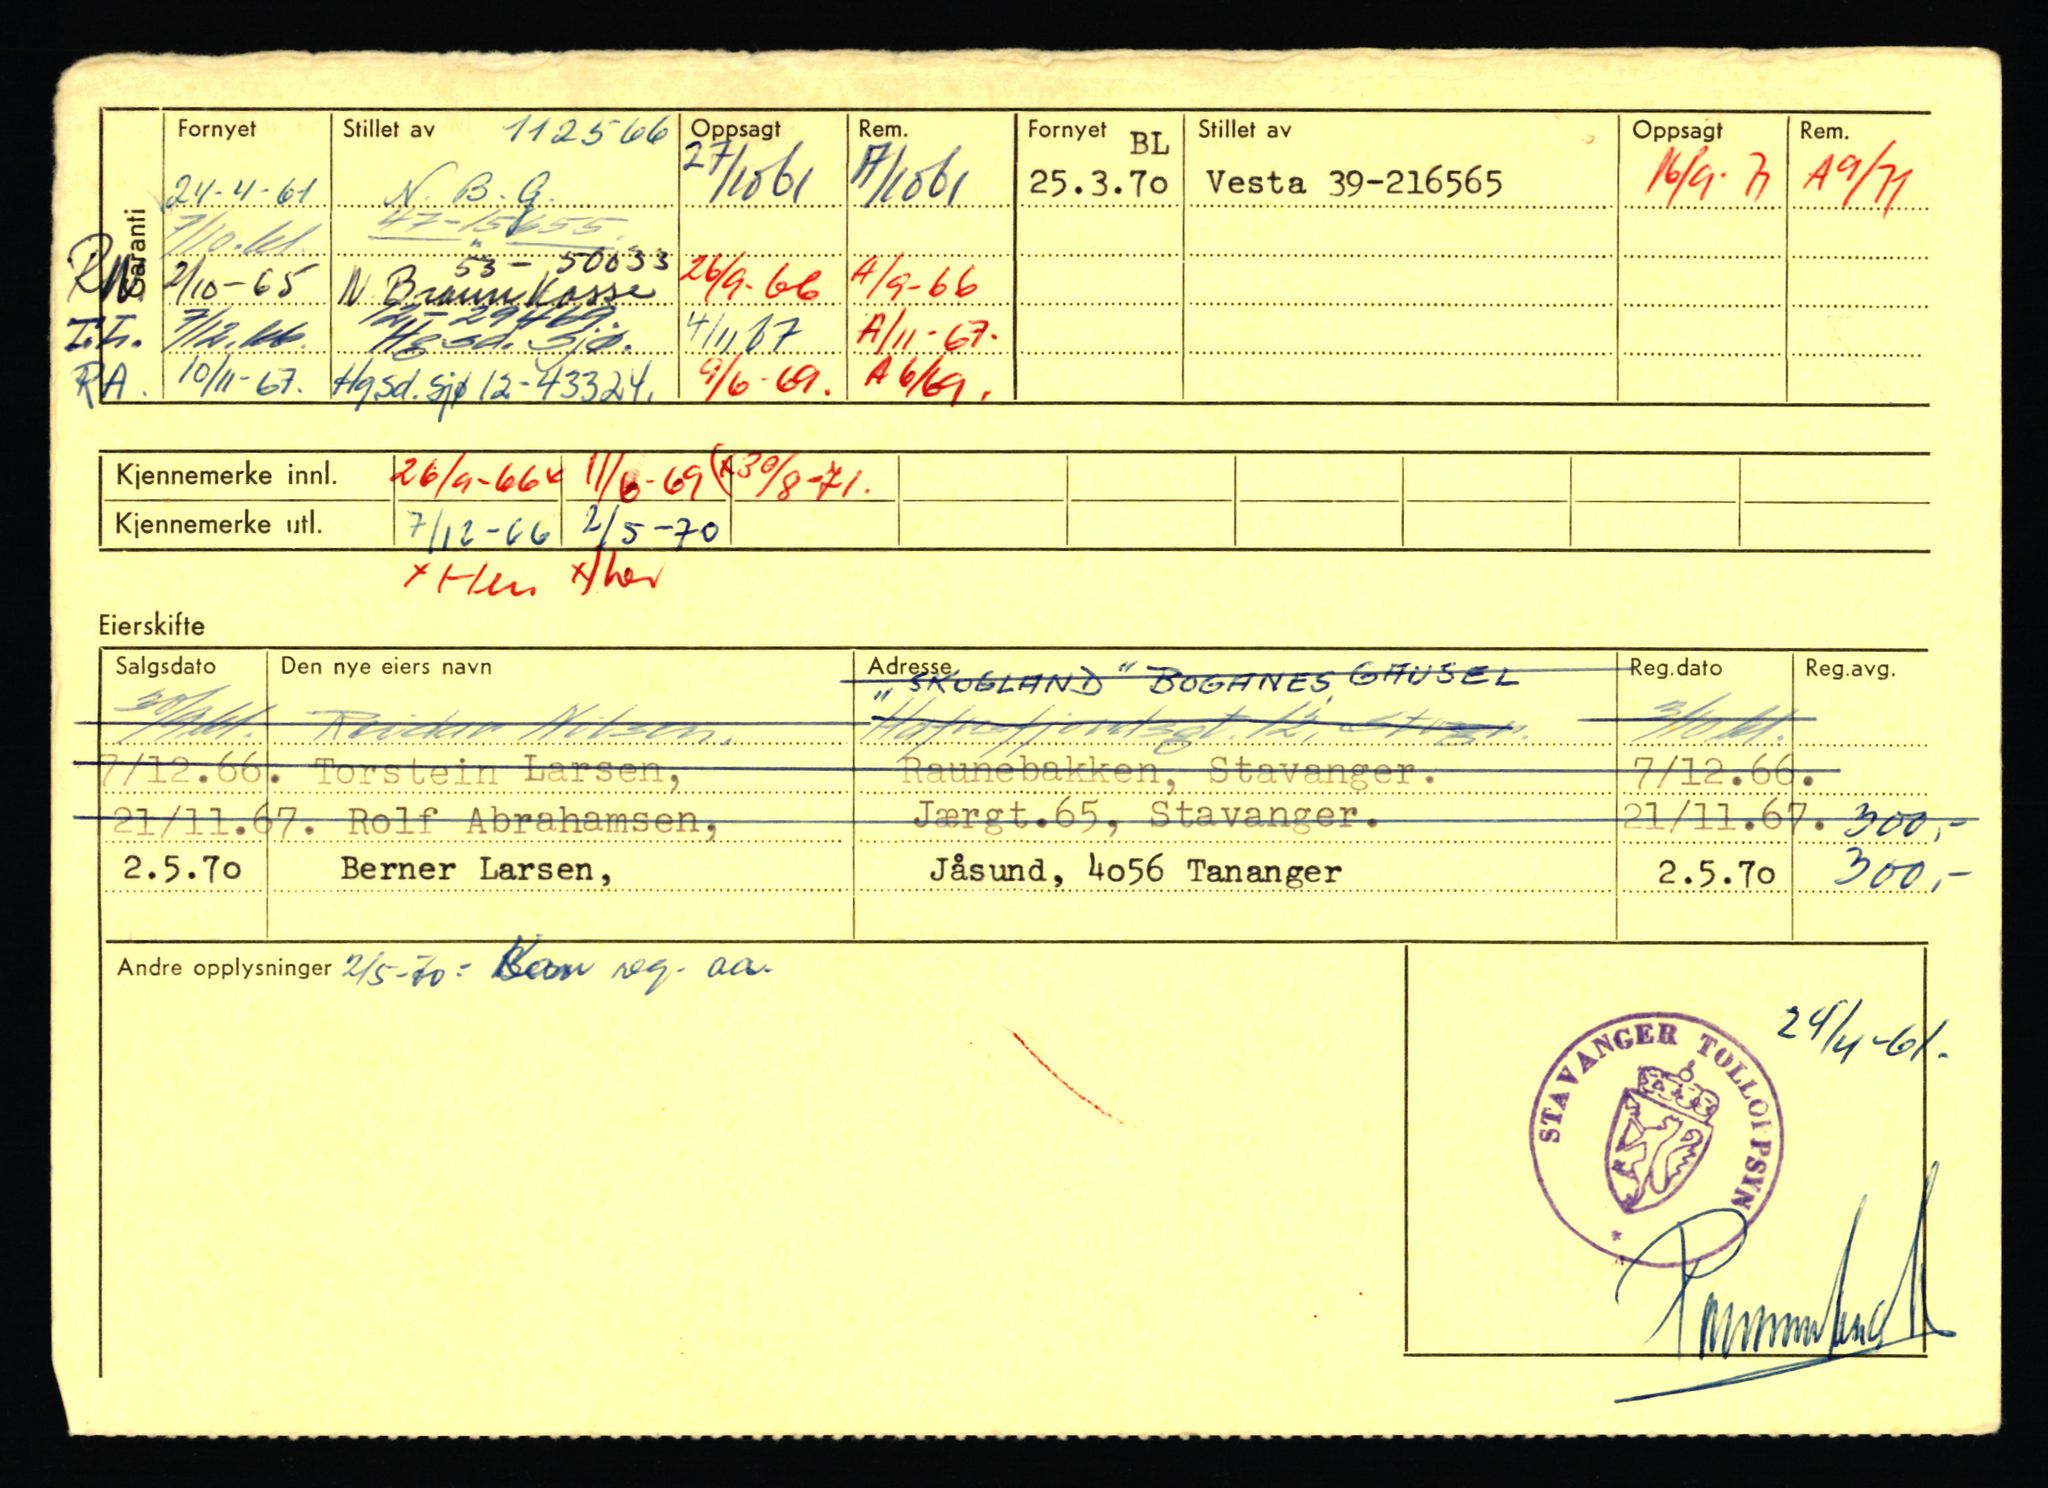 Garanti
Fornyet Stillet av 112566 Oppsagt Rem. Fornyet BL Stillet av Oppsagt Rem.
24-4-61 N. B. G. 27/10 61 A/10 61 25.3.70 Vesta 39-216565 16/9-71 A 9/71
7/10.61. 47-15655.
53-50633
RN. 2/10-65 N. Braun Kasse 26/9-66 A/9-66
T.L. 7/12.66. Hgsd. Sjø. 4/11 67 A/11-67.
RA. 10/11-67. Hgsd. sjø 12-43324. 9/6-69. A 6/69.
Kjennemerke innl. 26/9-66x 11/6-69 (x 30/8-71.
Kjennemerke utl. 7/12-66 2/5-70
Eierskifte
Salgsdato Den nye eiers navn Adresse Reg.dato Reg.avg.
"SKOGLAND" BOGANES, GAUSEL
30/9.61. Reidar Nilsen. 3/10.61.
7/12.66. Torstein Larsen, Raunebakken, Stavanger. 7/12.66.
21/11.67. Rolf Abrahamsen, Jærgt.65, Stavanger. 21/11.67. 300,-
2.5.70 Berner Larsen, Jåsund, 4056 Tananger 2.5.70 300,-
Andre opplysninger 2/5-70: reg. aa.
24/4-61.
STAVANGER TOLLOPPSYN